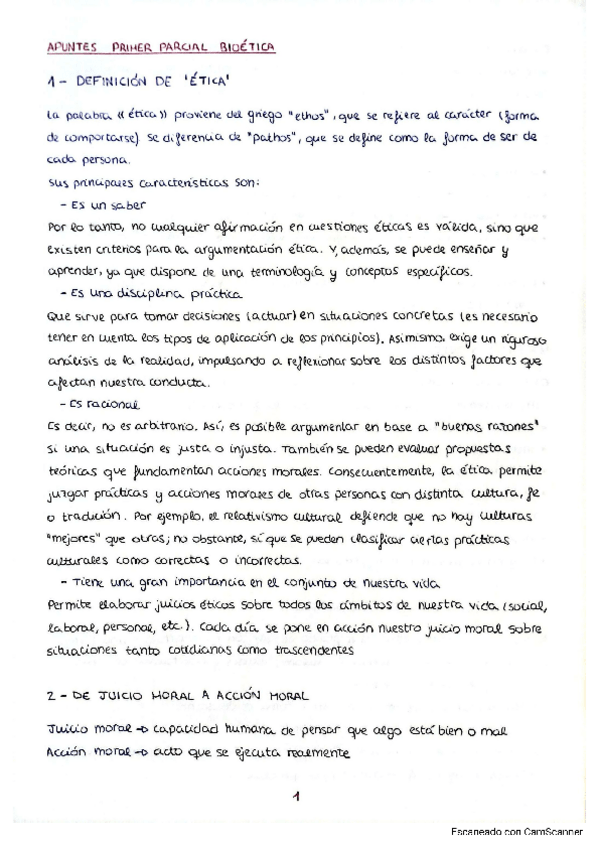 APUNTES PRIMER PARCIAL BIOÉTICA
1 - DEFINICIÓN DE 'ÉTICA'
La palabra «ética» proviene del griego "ethos", que se refiere al carácter (forma
de comportarse) se diferencia de "pathos", que se define como la forma de ser de
cada persona.
Sus principales características son:
- Es un saber
Por lo tanto, no cualquier afirmación en cuestiones éticas es válida, sino que
existen criterios para la argumentación ética. Y, además, se puede enseñar y
aprender, ya que dispone de una terminología y conceptos específicos.
- Es una disciplina práctica
Que sirve para tomar decisiones (actuar) en situaciones concretas (es necesario
tener en cuenta los tipos de aplicación de los principios). Asimismo, exige un riguroso
análisis de la realidad, impulsando a reflexionar sobre los distintos factores que
afectan nuestra conducta.
- Es racional
Es decir, no es arbitrario. Así, es posible argumentar en base a "buenas razones"
si una situación es justa o injusta. También se pueden evaluar propuestas
teóricas que fundamentan acciones morales. Consecuentemente, la ética permite
juzgar prácticas y acciones morales de otras personas con distinta cultura, fe
o tradición. Por ejemplo, el relativismo cultural defiende que no hay culturas
"mejores" que otras; no obstante, sí que se pueden clasificar ciertas prácticas
culturales como correctas o incorrectas.
- Tiene una gran importancia en el conjunto de nuestra vida
Permite elaborar juicios éticos sobre todos los ámbitos de nuestra vida (social,
laboral, personal, etc.). Cada día se pone en acción nuestro juicio moral sobre
situaciones tanto cotidianas como trascendentes
2 - DE JUICIO MORAL A ACCIÓN MORAL
Juicio moral → capacidad humana de pensar que algo está bien o mal
Acción moral → acto que se ejecuta realmente
1
Escaneado con CamScanner